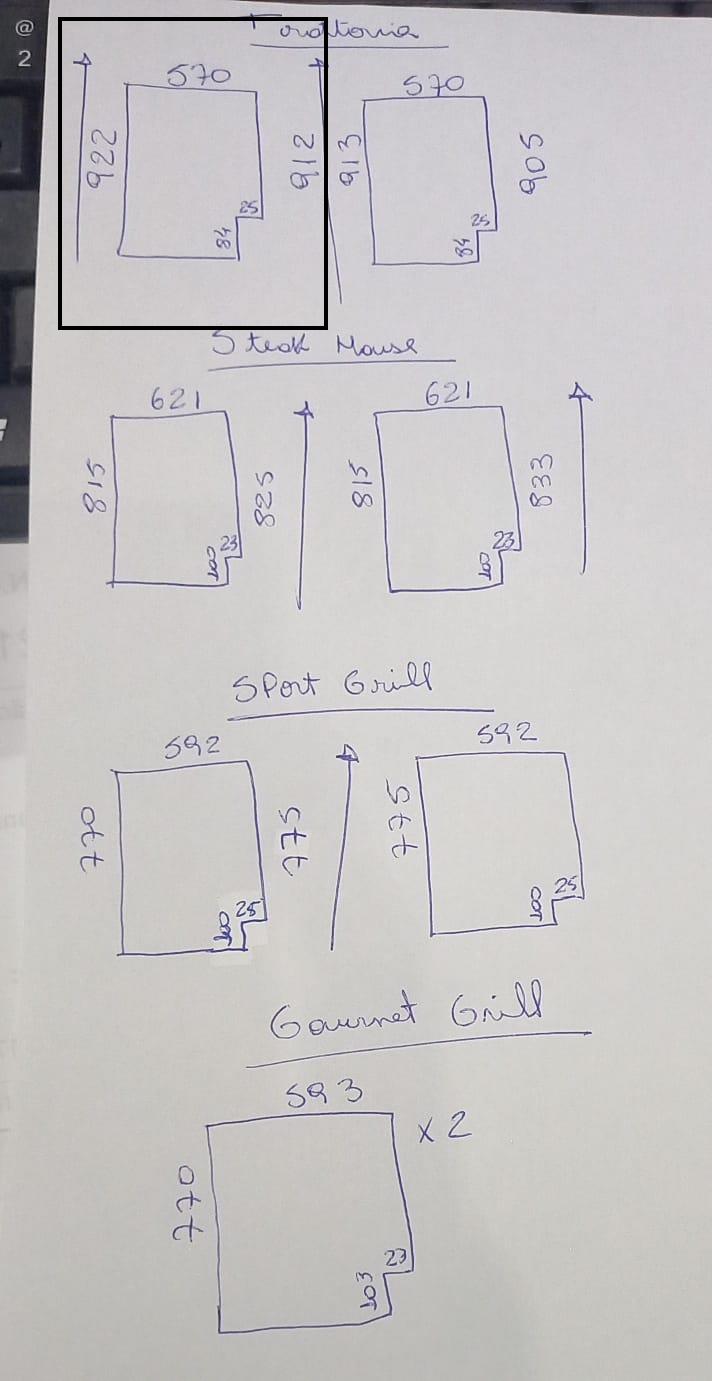 @
2
570
922
912
25
84
570
913
905
25
84
Steak House
621
815
825
23
100
621
815
833
23
100
Sport Grill
592
770
775
25
100
592
775
25
100
Gourmet Grill
593
x 2
770
23
103